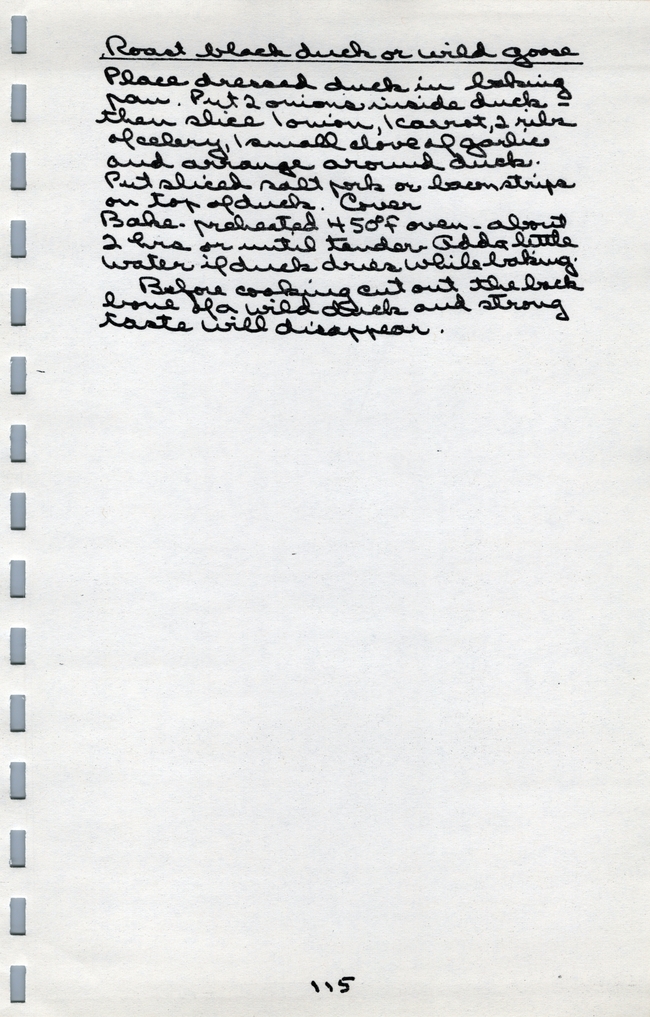 Roast black duck or wild goose
Place dressed duck in baking
pan. Put 2 onions inside duck –
then slice 1 onion, 1 carrot, 2 ribs
of celery, 1 small clove of garlic
and arrange around duck.
Put sliced salt pork or bacon strips
on top of duck. Cover
Bake. preheated 450°F oven - about
2 hrs or until tender Add a little
water if duck dries while baking.
Before cooking cut out the back
bone of a wild duck and strong
taste will disappear.
115